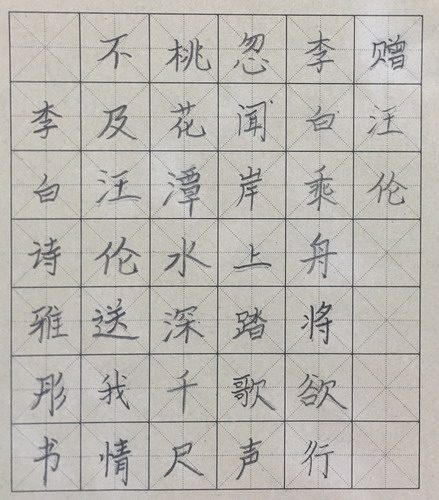 赠汪伦
李白乘舟将欲行
忽闻岸上踏歌声
桃花潭水深千尺
不及汪伦送我情
李白诗雅彤书